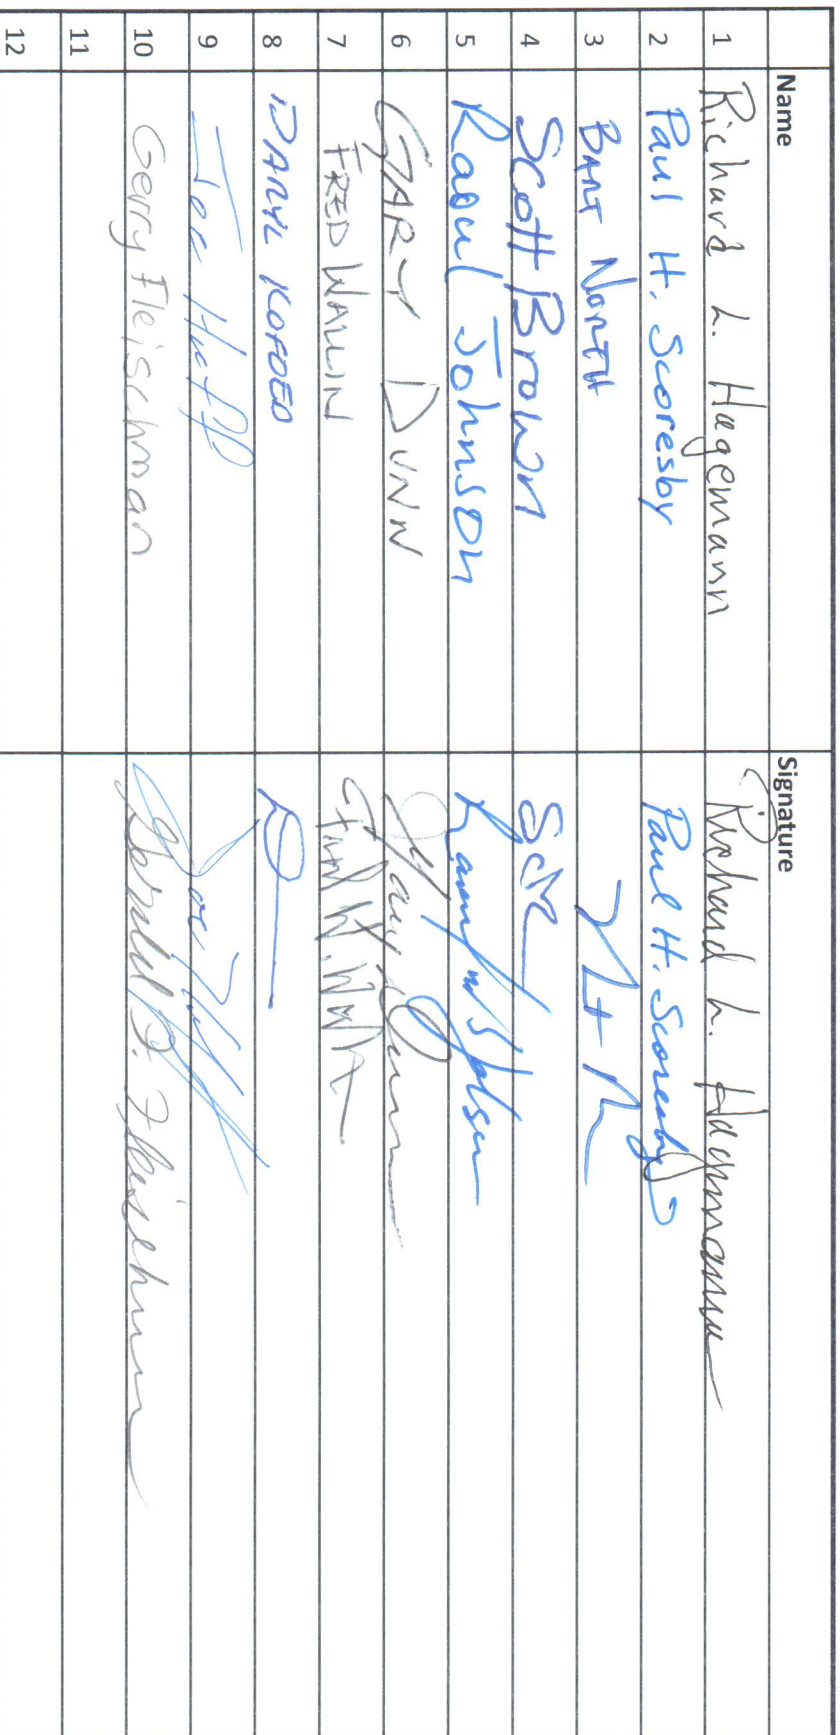 Name Signature
1 Richard L. Hagemann Richard L. Hagemann
2 Paul H. Scoresby Paul H. Scoresby
3 BART NORTH
4 Scott Brown
5 Raoul Johnson
6 GARY DUNN Gary Dunn
7 FRED WALLIN
8 DARYL KOFOED
9 Joe Huff Joe Huff
10 Gerry Fleischman Gerald D. Fleischman
11
12